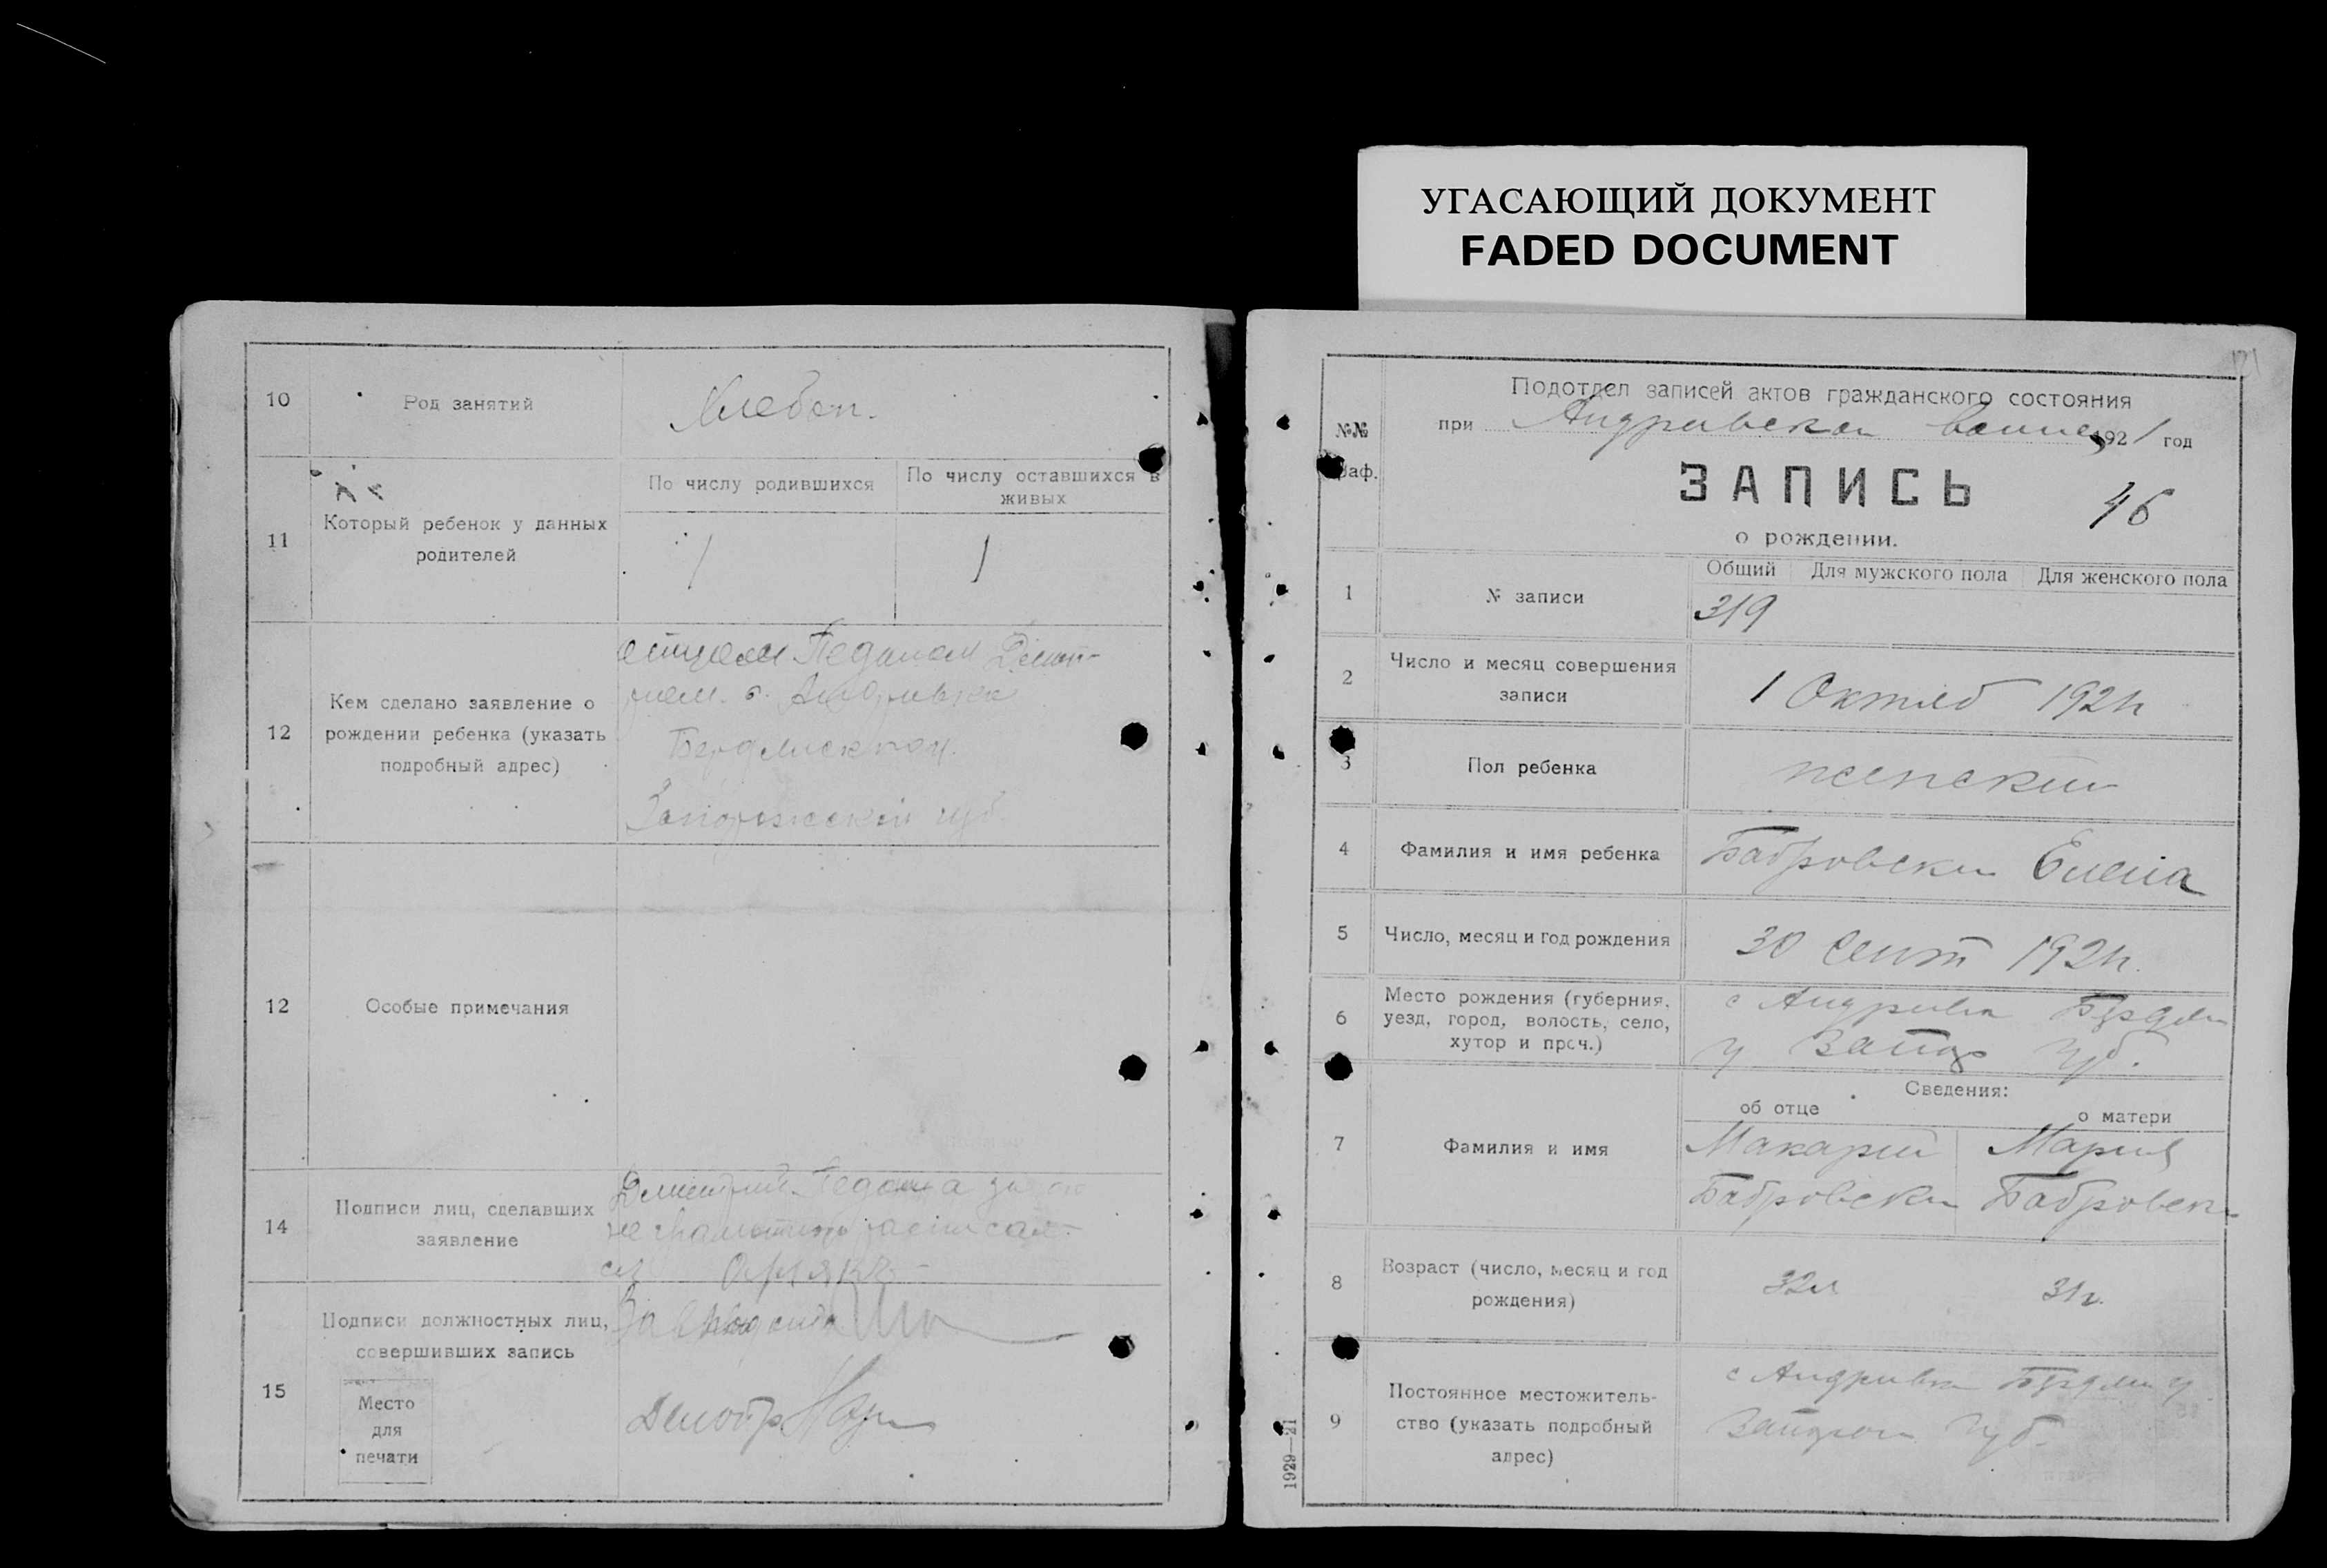 УГАСАЮЩИЙ ДОКУМЕНТ
FADED DOCUMENT
10
Род занятий
Хлебоп.
11
Который ребенок у данных
родителей
По числу родившихся
По числу оставшихся в
живых
1
1
12
Кем сделано заявление о
рождении ребенка (указать
подробный адрес)
с. Андривка
Бердянской
Запорожской губ.
12
Особые примечания
14
Подписи лиц, сделавших
заявление
Дмитрий
15
Подписи должностных лиц,
совершивших запись
Место
для
печати
№№
Подотдел записей актов гражданского состояния
при Андривской 1921 год
ЗАПИСЬ
46
о рождении.
1
№ записи
Общий
Для мужского пола
Для женского пола
319
2
Число и месяц совершения
записи
1 Октяб 1921г
3
Пол ребенка
женский
4
Фамилия и имя ребенка
Бабровски Елена
5
Число, месяц и год рождения
30 Сент 1921г.
6
Место рождения (губерния,
уезд, город, волость, село,
хутор и проч.)
с Андривка Бердян
у Запор губ.
7
Фамилия и имя
Сведения:
об отце
о матери
Макарий
Бабровски
Мария
Бабровск
8
Возраст (число, месяц и год
рождения)
32л
31г.
9
Постоянное местожитель-
ство (указать подробный
адрес)
с Андривка Бердян у
губ.
1929—21